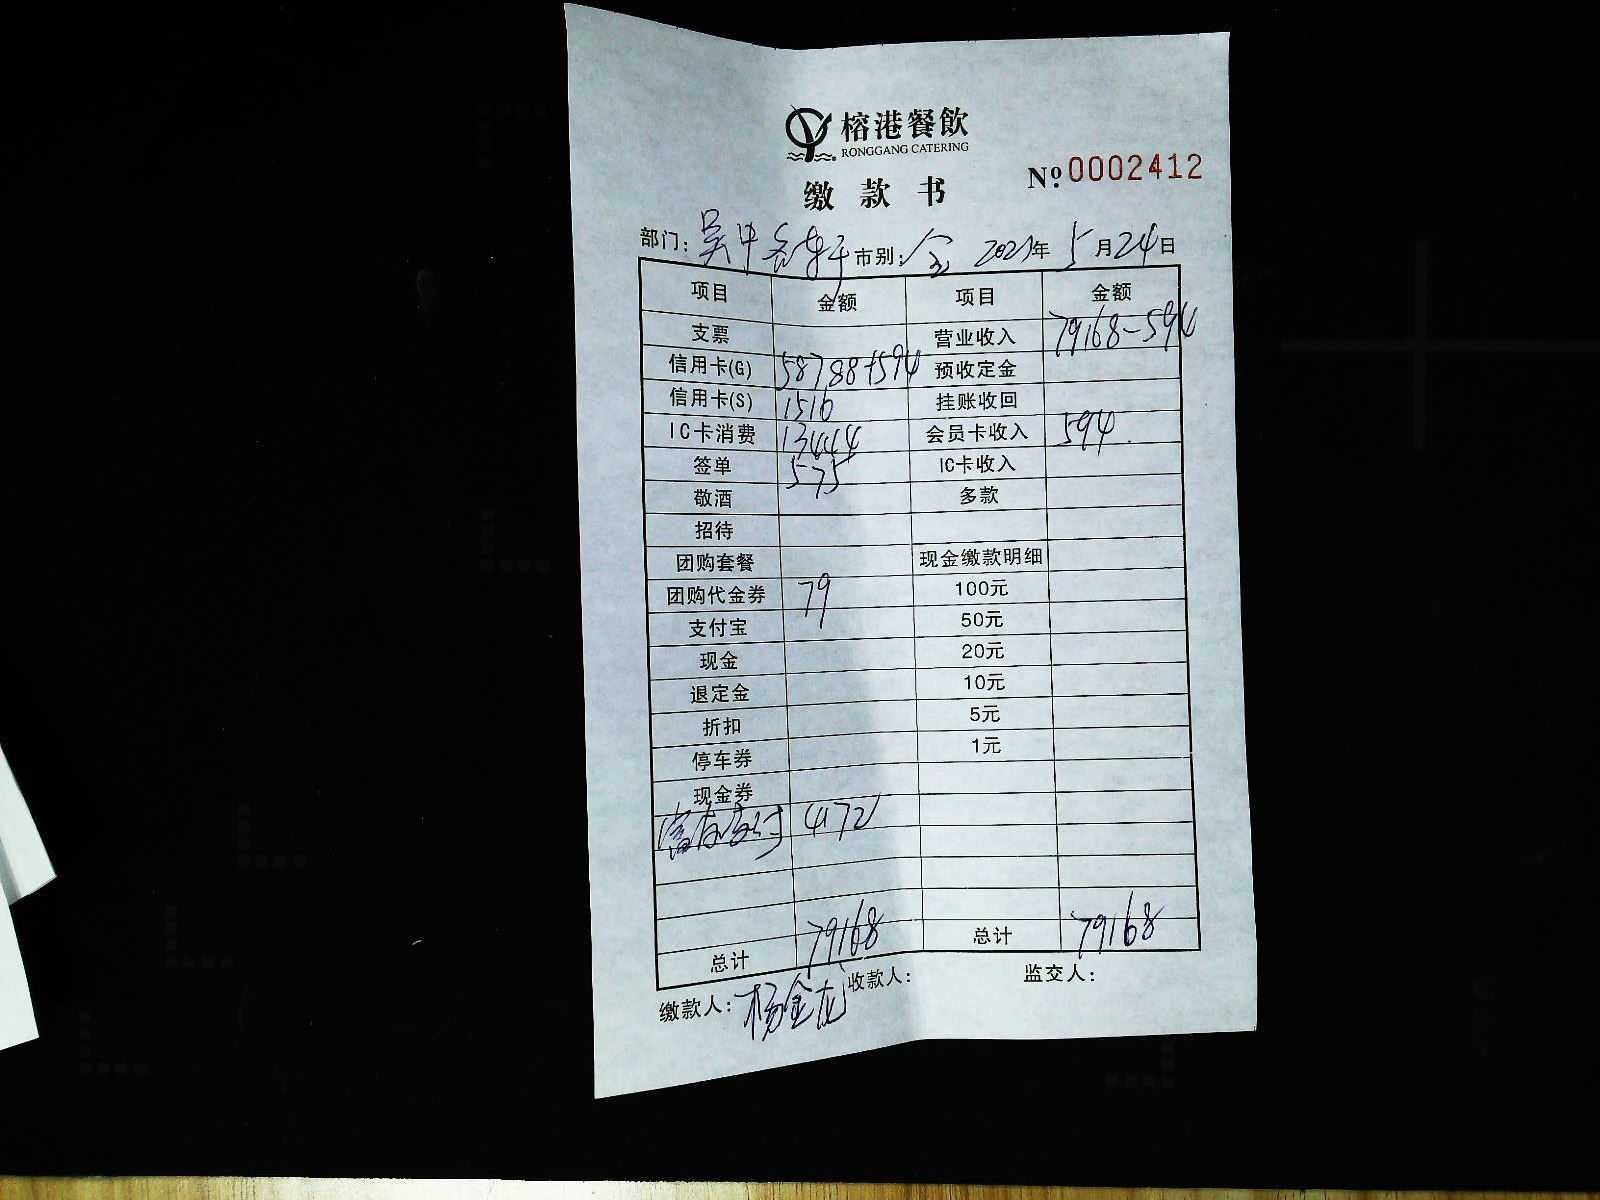 榕港餐飲
RONGGANG CATERING
缴款书
Nº 0002412
部门: 吴中 市别: 全 2021年 5月24日
项目 金额 项目 金额
支票 营业收入 79168-594
信用卡(G) 58788+594 预收定金
信用卡(S) 1516 挂账收回
IC卡消费 13444 会员卡收入 594
签单 575 IC卡收入
敬酒 多款
招待
团购套餐 现金缴款明细
团购代金券 79 100元
支付宝 50元
现金 20元
退定金 10元
折扣 5元
停车券 1元
现金券
富友支付 4172
总计 79168 总计 79168
缴款人: 杨金龙 收款人: 监交人: